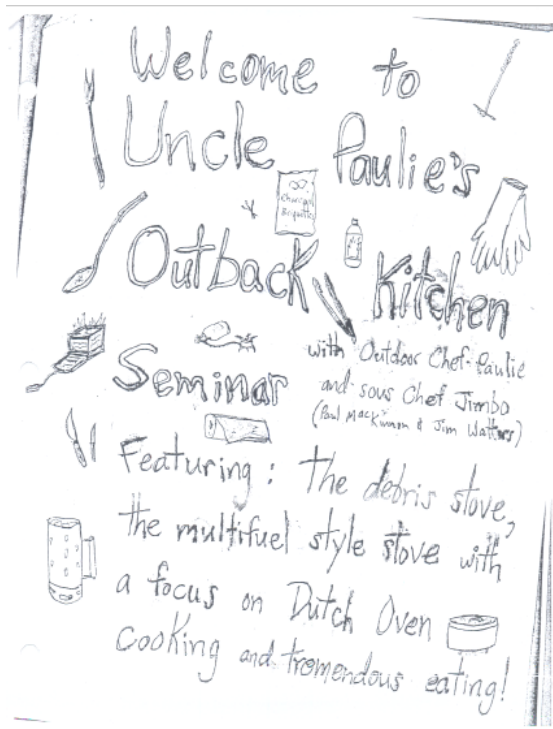 Welcome to
Uncle Paulie's
Charcoal
Briquettes
Outback Kitchen
Seminar
with Outdoor Chef Paulie
and sous Chef Jimbo
(Paul MacKinnon & Jim Watters)
Featuring: The debris stove,
the multifuel style stove with
a focus on Dutch Oven
cooking and tromendous eating!